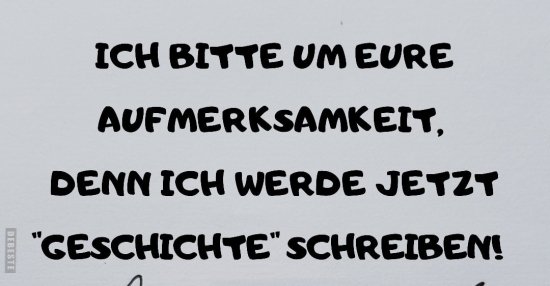 ICH BITTE UM EURE
AUFMERKSAMKEIT,
DENN ICH WERDE JETZT
"GESCHICHTE" SCHREIBEN!
DEBESTE